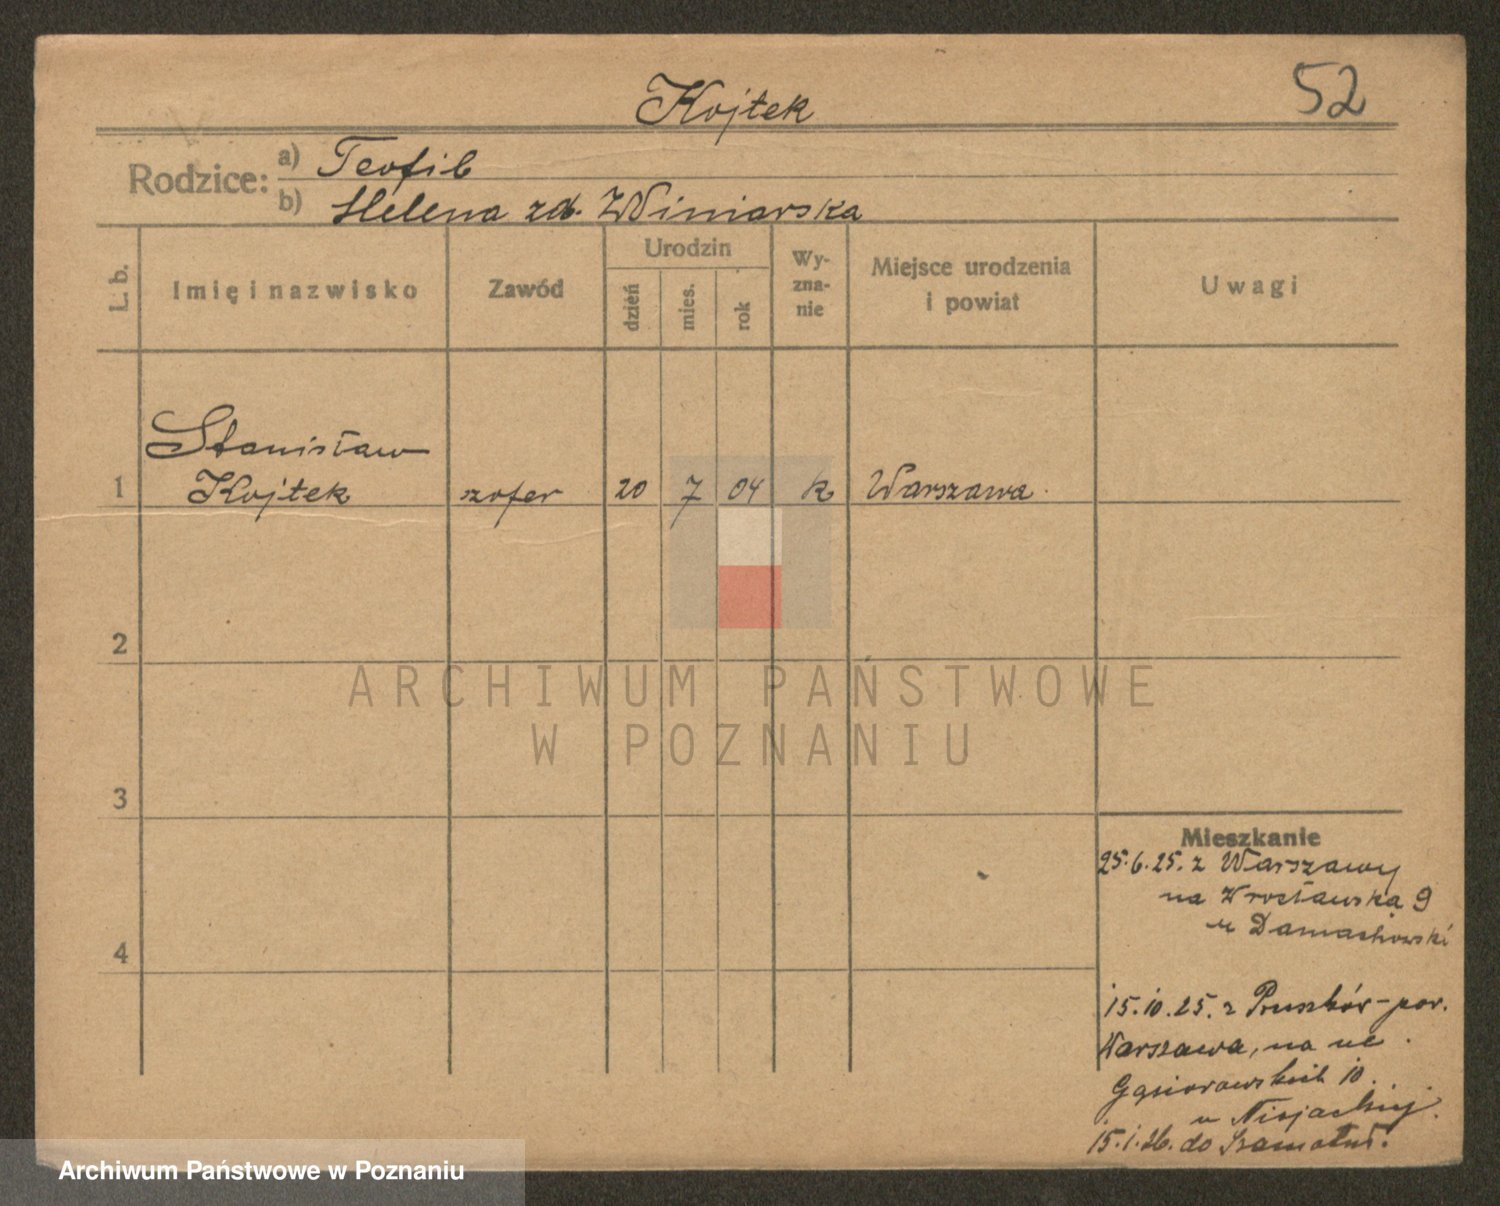 Kojtek
52
Rodzice:
a) Teofil
b) Helena zd. Winiarska
L. b.
Imię i nazwisko
Zawód
Urodzin
dzień
mies.
rok
Wy-
zna-
nie
Miejsce urodzenia
i powiat
Uwagi
Stanisław
1 Kojtek szofer 20 7 04 k Warszawa
2
3
4
Mieszkanie
25.6.25. z Warszawy
na Wrocławska 9
u Damachowski
15.10.25. z Pruszków - pow.
Warszawa, na ul.
Gąsiorowskich 10.
u
15.1.26. do Szamotuł.
ARCHIWUM PAŃSTWOWE
W POZNANIU
Archiwum Państwowe w Poznaniu